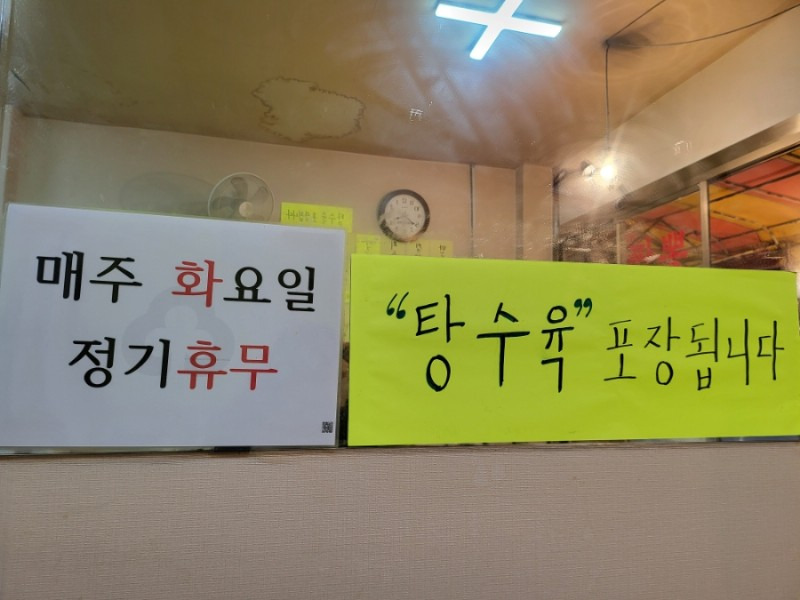 매주 화요일
정기휴무
“탕수육” 포장됩니다